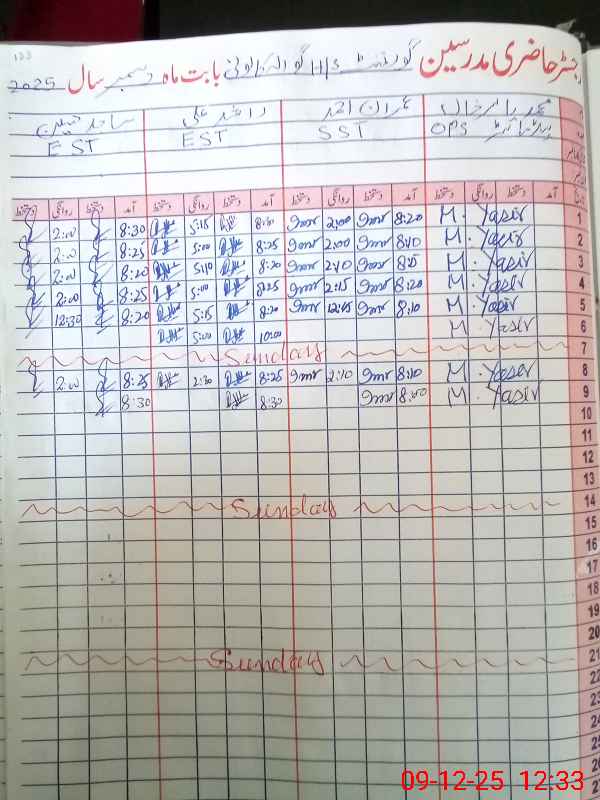 133
رجسٹر حاضری مدرسین گورنمنٹ H/S بابت ماہ دسمبر سال 2025
محمد یاسر خان عمران احمد راشد علی ساجد حسین
OPS SST EST EST
آمد دستخط روانگی دستخط آمد دستخط روانگی دستخط آمد دستخط روانگی دستخط آمد دستخط روانگی دستخط
2:00 8:30 5:15 8:30 2:00 8:20 M. Yasir 1
2:00 8:25 5:00 8:25 2:00 8:10 M. Yasir 2
2:00 8:20 5:10 8:20 2:10 M. Yasir 3
2:00 8:25 5:00 8:25 2:15 8:20 M. Yasir 4
12:30 8:20 5:15 8:20 12:45 8:10 M. Yasir 5
5:00 10:00 M. Yasir 6
Sunday 7
2:00 8:25 2:30 8:25 2:10 8:10 M. Yasir 8
8:30 8:30 M. Yasir 9
10
11
12
13
Sunday 14
15
16
17
18
19
20
Sunday 21
22
23
24
25
26
09-12-25 12:33